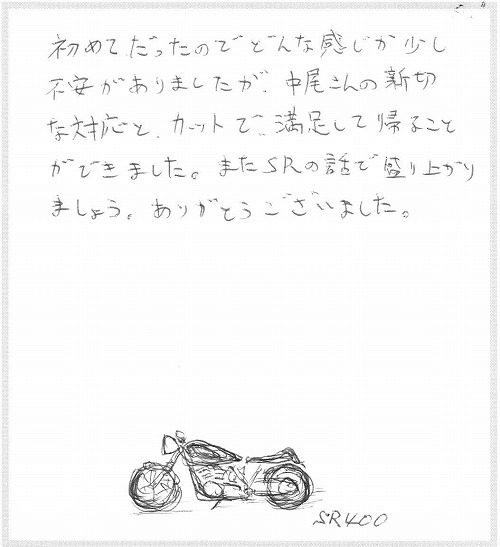 初めてだったのでどんな感じか少し
不安がありましたが、中尾さんの新切
な対応と、カットで、満足して帰ること
ができました。またSRの話で盛り上がり
ましょう。ありがとうございました。
SR400